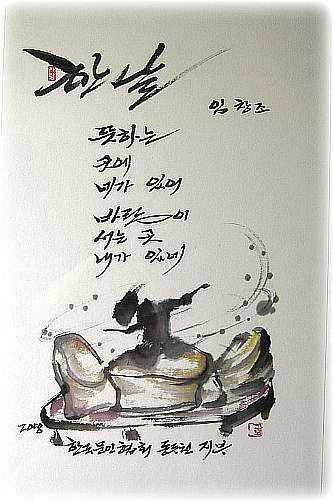 한 날
임 창 조
뜻하는
곳에
네가 있어
바람이
서는 곳
내가 있네
한국문인협회 지부